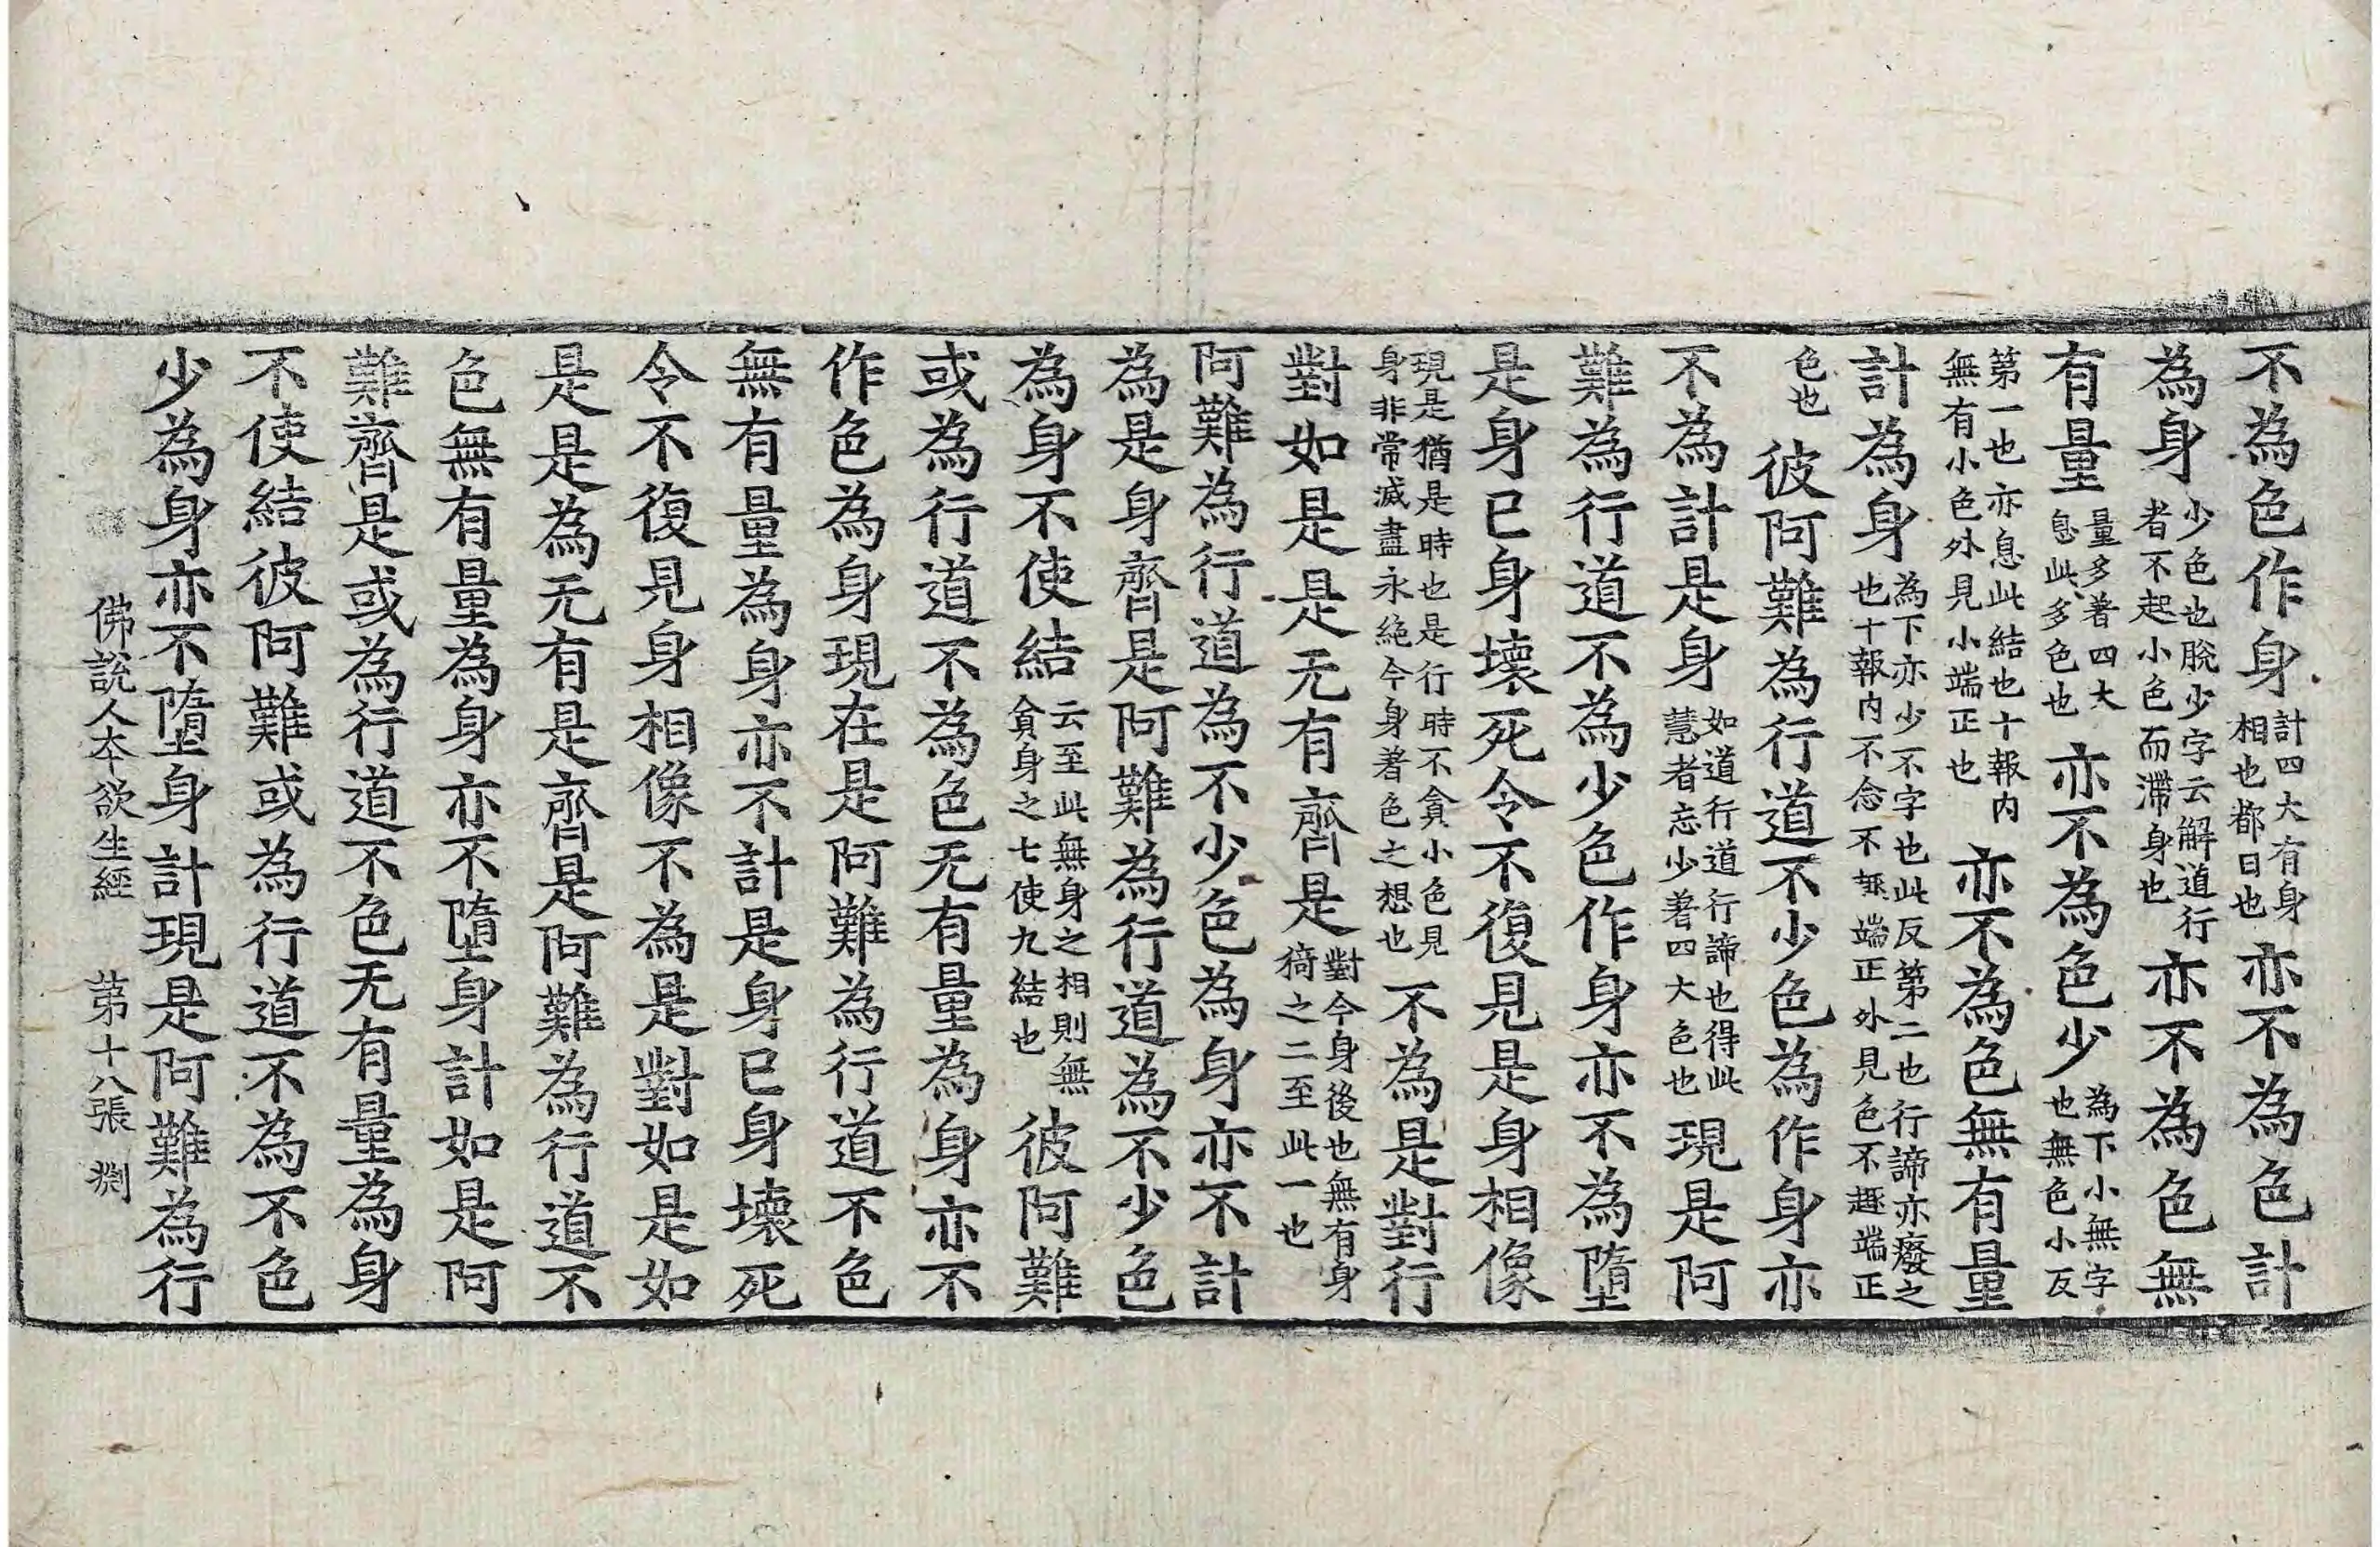 不為色作身計四大有身相也都日也亦不為色計
為身少色也脫少字云解道行者不起小色而滯身也亦不為色無
有量量多著四大息此多色也亦不為色少為下小無字也無色小反
第一也亦息此結也十報内無有小色外見小端正也亦不為色無有量
計為身為下亦少不字也此反第二也行諦亦癈之也十報内不念不無端正外見色不趣端正
色也彼阿難為行道不少色為作身亦
不為計是身如道行道行諦也得此慧者忘少著四大色也現是阿
難為行道不為少色作身亦不為墮
是身已身壞死令不復見是身相像
現是猶是時也是行時不貪小色見身非常滅盡永絶今身著色之想也不為是對行
對如是是无有齊是對今身後也無有身猗之二至此一也
阿難為行道為不少色為身亦不計
為是身齊是阿難為行道為不少色
為身不使結云至此無身之相則無貪身之七使九結也彼阿難
或為行道不為色无有量為身亦不
作色為身現在是阿難為行道不色
無有量為身亦不計是身已身壞死
令不復見身相像不為是對如是如
是是為无有是齊是阿難為行道不
色無有量為身亦不墮身計如是阿
難齊是或為行道不色无有量為身
不使結彼阿難或為行道不為不色
少為身亦不墮身計現是阿難為行
佛說人本欲生經 第十八張